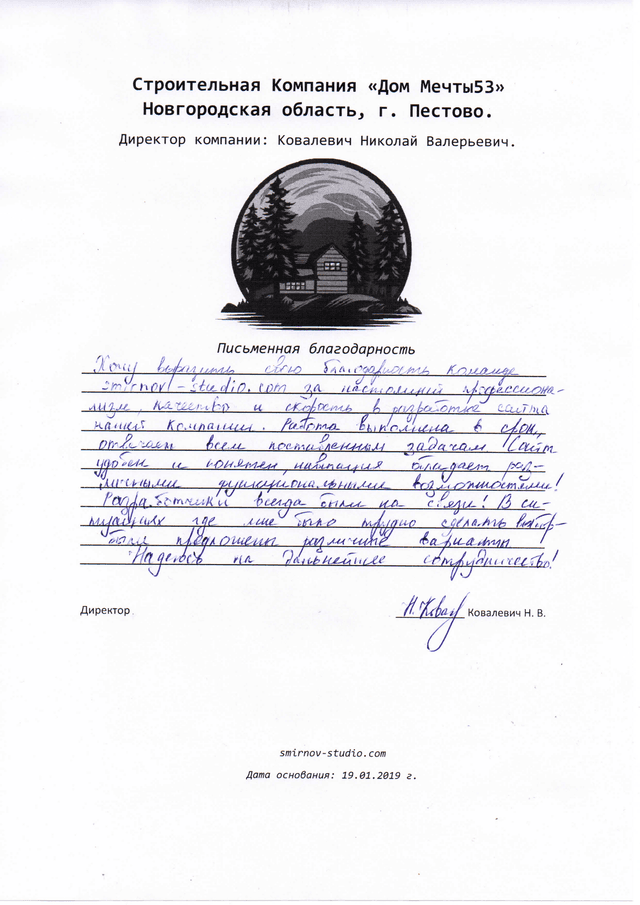 Строительная Компания «Дом Мечты53»
Новгородская область, г. Пестово.
Директор компании: Ковалевич Николай Валерьевич.
Письменная благодарность
Хочу выразить свою благодарность команде
smirnov-studio.com за настоящий профессиона-
лизм, качество и скорость в разработке сайта
нашей компании. Работа выполнена в срок,
отвечает всем поставленным задачам. Сайт
удобен и понятен, навигация обладает раз-
личными функциональными возможностями!
Разработчики всегда были на связи! В си-
туациях где мне было трудно сделать выбор-
были предложены различные варианты.
Надеюсь на дальнейшее сотрудничество!
Директор Н. Ковал Ковалевич Н. В.
smirnov-studio.com
Дата основания: 19.01.2019 г.